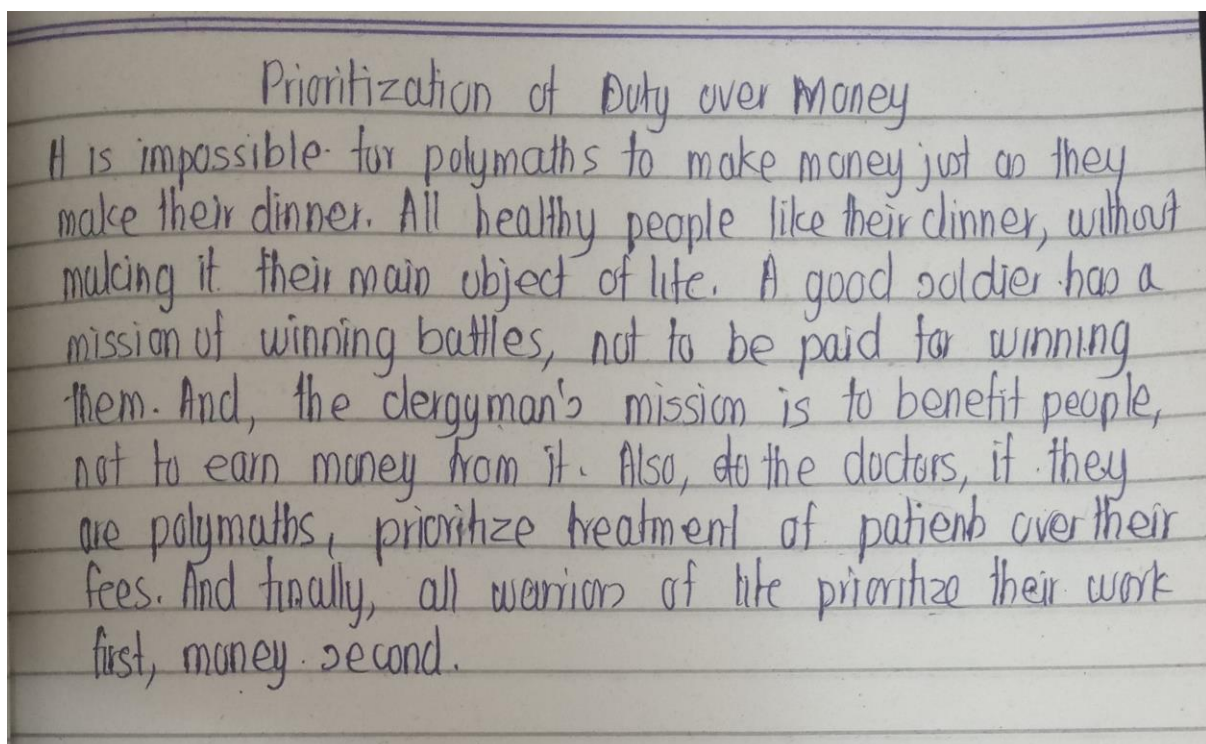 Prioritization of Duty over Money
It is impossible for polymaths to make money just as they
make their dinner. All healthy people like their dinner, without
making it their main object of life. A good soldier has a
mission of winning battles, not to be paid for winning
them. And, the clergyman's mission is to benefit people,
not to earn money from it. Also, do the doctors, if they
are polymaths, prioritize treatment of patients over their
fees. And finally, all warriors of life prioritize their work
first, money second.